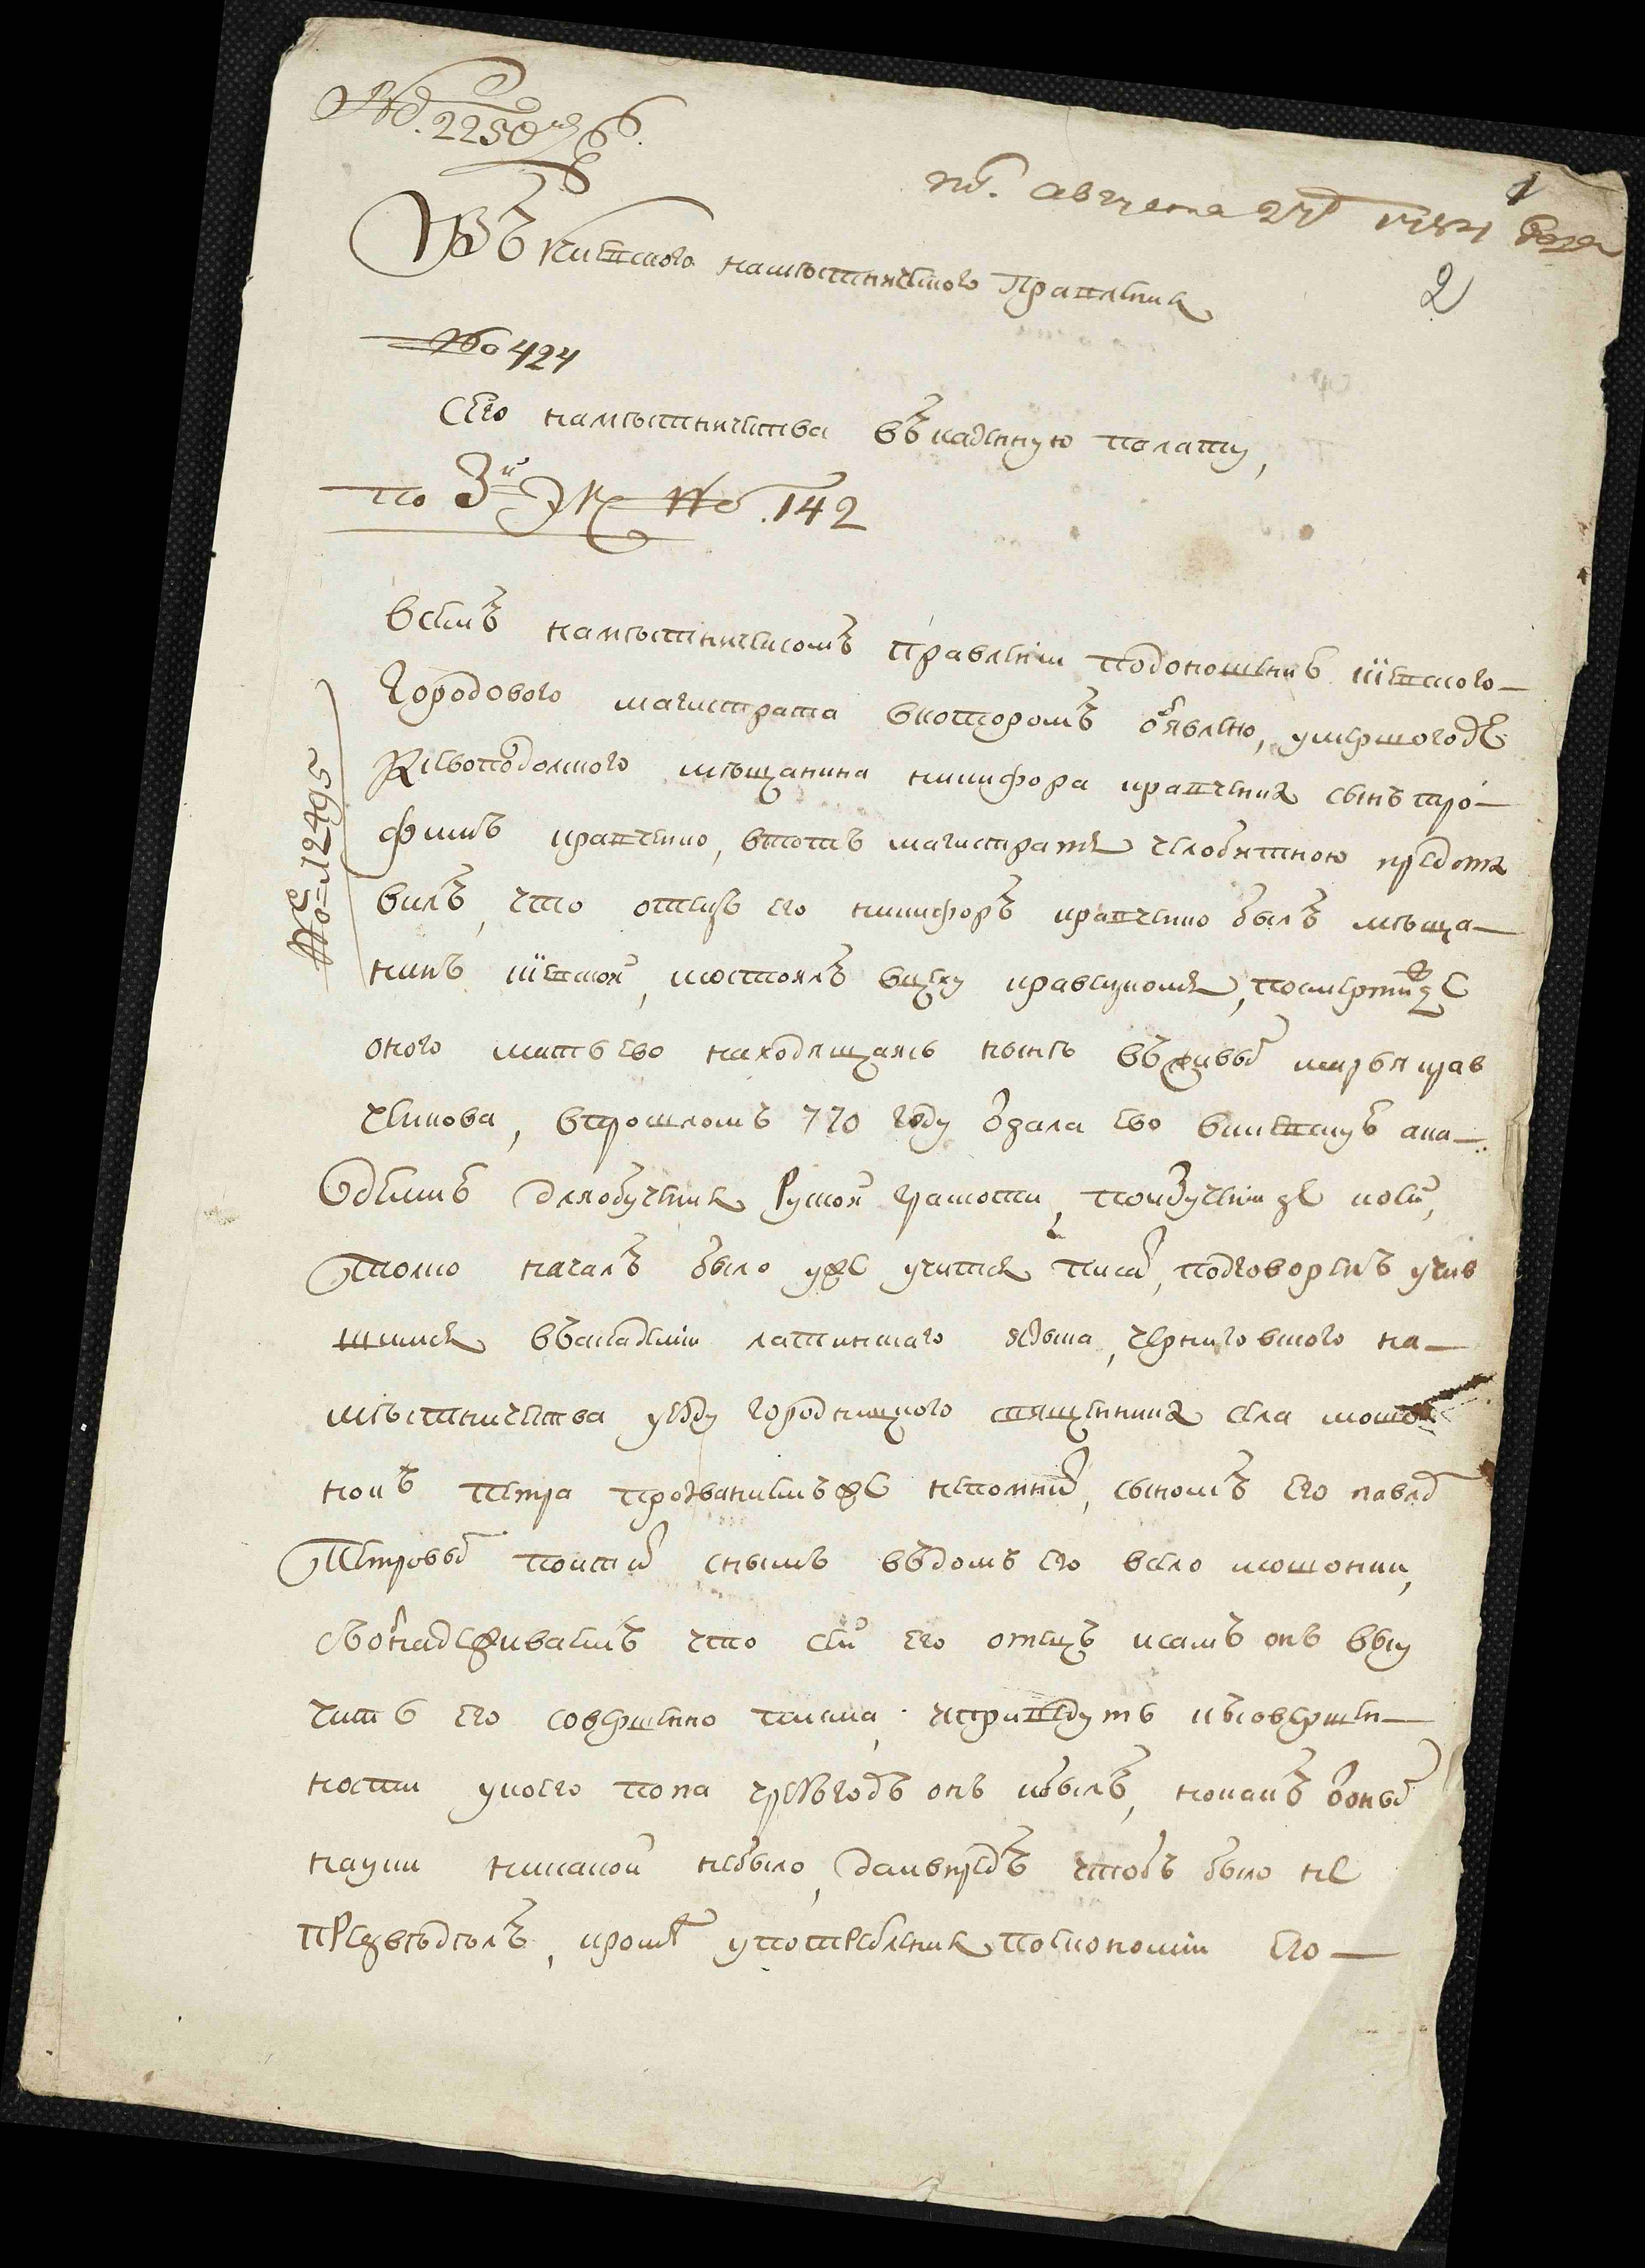 № 2250
по. августа 27 1784 года
1
2
Изъ Киевского наместнического Правления
№ 424
Сего наместничества въ казенную полату,
по 3й Эк № 142
№ 12495
Всемъ наместническомъ правлении по доношению киевского
городового магистрата вкоторомъ обявлено, умершогоде
киевоподолного мещанина никифора кравченка сынъ тро-
фимъ кравченко, втотъ магистратъ челобитною предста
вилъ, что отецъ его никифоръ кравченко былъ меща-
нинъ киевской, исостоялъ вцеху кравецкомъ, посмертижъ
оного мать ево находящаясь ныне въ живых марья крав
ченкова, впрошломъ 770 году отдала ево вкиевскую ака-
демию дляобучения руской грамоти, пообучении же коей,
толко началъ было уже учится писать, подговоренъ учив
шимся въакадемии латинскаго языка, черниговского на-
местничества уезду городницкого священника села мошо
нокъ петра прозваниемъже непомнить, сыномъ его павлом
Петровымъ поити снымъ въ домъ его всело мошонки,
собнадеживаемъ что сей его отецъ исамъ онъ выу
читъ его совершенно писма, ипришедъ къ совершен-
ности укоего попа чрезъ годъ онъ и былъ, нокакъ оному
науки никакой небыло, даивпредъ чтобъ было не
предвиделъ, кроме употребления поекономии его